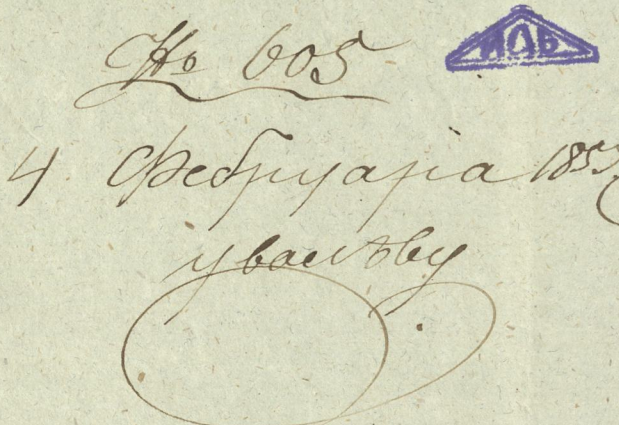 № 605
ИАБ
4 Фебруарiа 185
у Ваљѣву